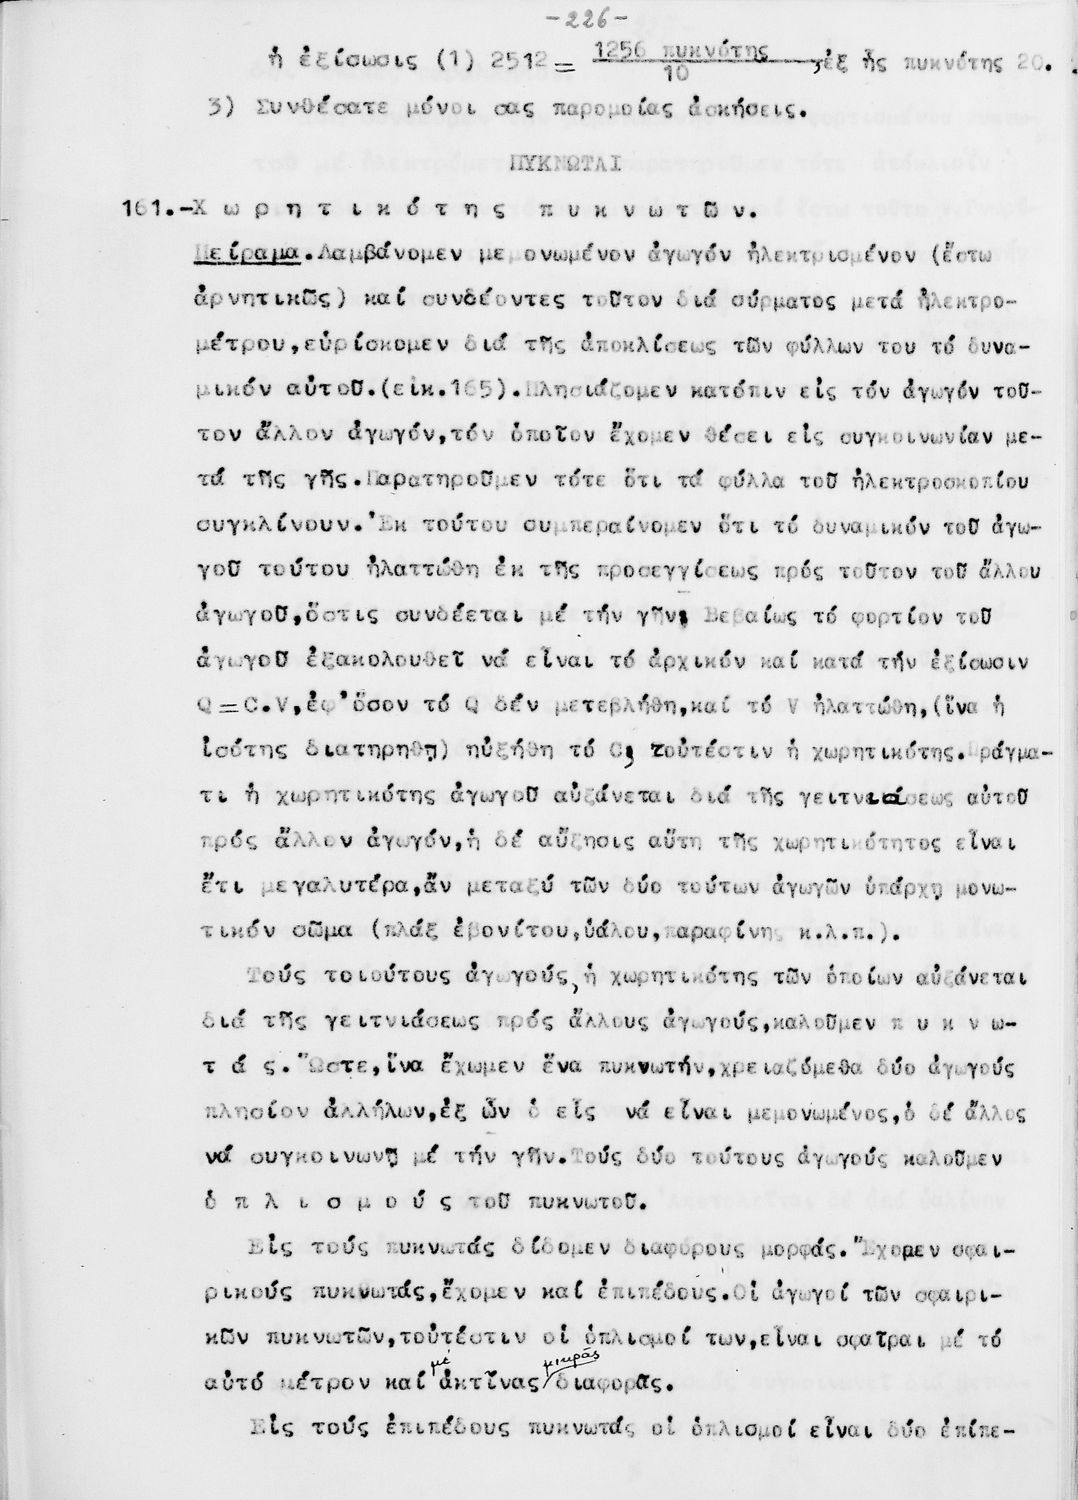 -226-
ἡ ἐξίσωσις (1) 2512 = 1256 πυκνότης / 10 ,ἐξ ἧς πυκνότης 20.
3) Συνθέσατε μόνοι σας παρομοίας ἀσκήσεις.
ΠΥΚΝΩΤΑΙ
161.-Χ ω ρ η τ ι κ ό τ η ς π υ κ ν ω τ ῶ ν.
Πείραμα.Λαμβάνομεν με μονωμένον ἀγωγόν ἠλεκτρισμένον (ἔστω
ἀρνητικῶς) καί συνδέοντες τοῦτον διά σύρματος μετά ἠλεκτρο-
μέτρου,εὑρίσκομεν διά τῆς ἀποκλίσεως τῶν φύλλων του τό δυνα-
μικόν αὐτοῦ.(εἰκ.165).Πλησιάζομεν κατόπιν εἰς τόν ἀγωγόν τοῦ-
τον ἄλλον ἀγωγόν,τόν ὁποῖον ἔχομεν θέσει εἰς συγκοινωνίαν με-
τά τῆς γῆς.Παρατηροῦμεν τότε ὅτι τά φύλλα τοῦ ἠλεκτροσκοπίου
συγκλίνουν.Ἐκ τούτου συμπεραίνομεν ὅτι τό δυναμικόν τοῦ ἀγω-
γοῦ τούτου ἠλαττώθη ἐκ τῆς προσεγγίσεως πρός τοῦτον τοῦ ἄλλου
ἀγωγοῦ,ὅστις συνδέεται μέ τήν γῆν. Βεβαίως τό φορτίον τοῦ
ἀγωγοῦ ἐξακολουθεῖ νά εἶναι τό ἀρχικόν καί κατά τήν ἐξίσωσιν
Q=C.V,ἐφ'ὅσον τό Q δέν μετεβλήθη,καί τό V ἠλαττώθη,(ἵνα ἡ
ἰσότης διατηρηθῇ) ηὐξήθη τό C, τοὐτέστιν ἡ χωρητικότης.Πράγμα-
τι ἡ χωρητικότης ἀγωγοῦ αὐξάνεται διά τῆς γειτνιάσεως αὐτοῦ
πρός ἄλλον ἀγωγόν,ἡ δέ αὔξησις αὕτη τῆς χωρητικότητος εἶναι
ἔτι μεγαλυτέρα,ἄν μεταξύ τῶν δύο τούτων ἀγωγῶν ὑπάρχῃ μονω-
τικόν σῶμα (πλάξ ἐβονίτου,ὑάλου,παραφίνης κ.λ.π.).
Τούς τοιούτους ἀγωγούς,ἡ χωρητικότης τῶν ὁποίων αὐξάνεται
διά τῆς γειτνιάσεως πρός ἄλλους ἀγωγούς,καλοῦμεν π υ κ ν ω-
τ ά ς.Ὥστε,ἵνα ἔχωμεν ἕνα πυκνωτήν,χρειαζόμεθα δύο ἀγωγούς
πλησίον ἀλλήλων,ἐξ ὧν ὁ εἷς νά εἶναι μεμονωμένος,ὁ δέ ἄλλος
νά συγκοινωνῇ μέ τήν γῆν.Τούς δύο τούτους ἀγωγούς καλοῦμεν
ὁ π λ ι σ μ ο ύ ς τοῦ πυκνωτοῦ.
Εἰς τούς πυκνωτάς δίδομεν διαφόρους μορφάς.Ἔχομεν σφαι-
ρικούς πυκνωτάς,ἔχομεν καί ἐπιπέδους.Οἱ ἀγωγοί τῶν σφαιρι-
κῶν πυκνωτῶν,τοὐτέστιν οἱ ὁπλισμοί των,εἶναι σφαῖραι μέ τό
αὐτό κέντρον καί μέ ἀκτῖνας μικρᾶς διαφορᾶς.
Εἰς τούς ἐπιπέδους πυκνωτάς οἱ ὁπλισμοί εἶναι δύο ἐπίπε-